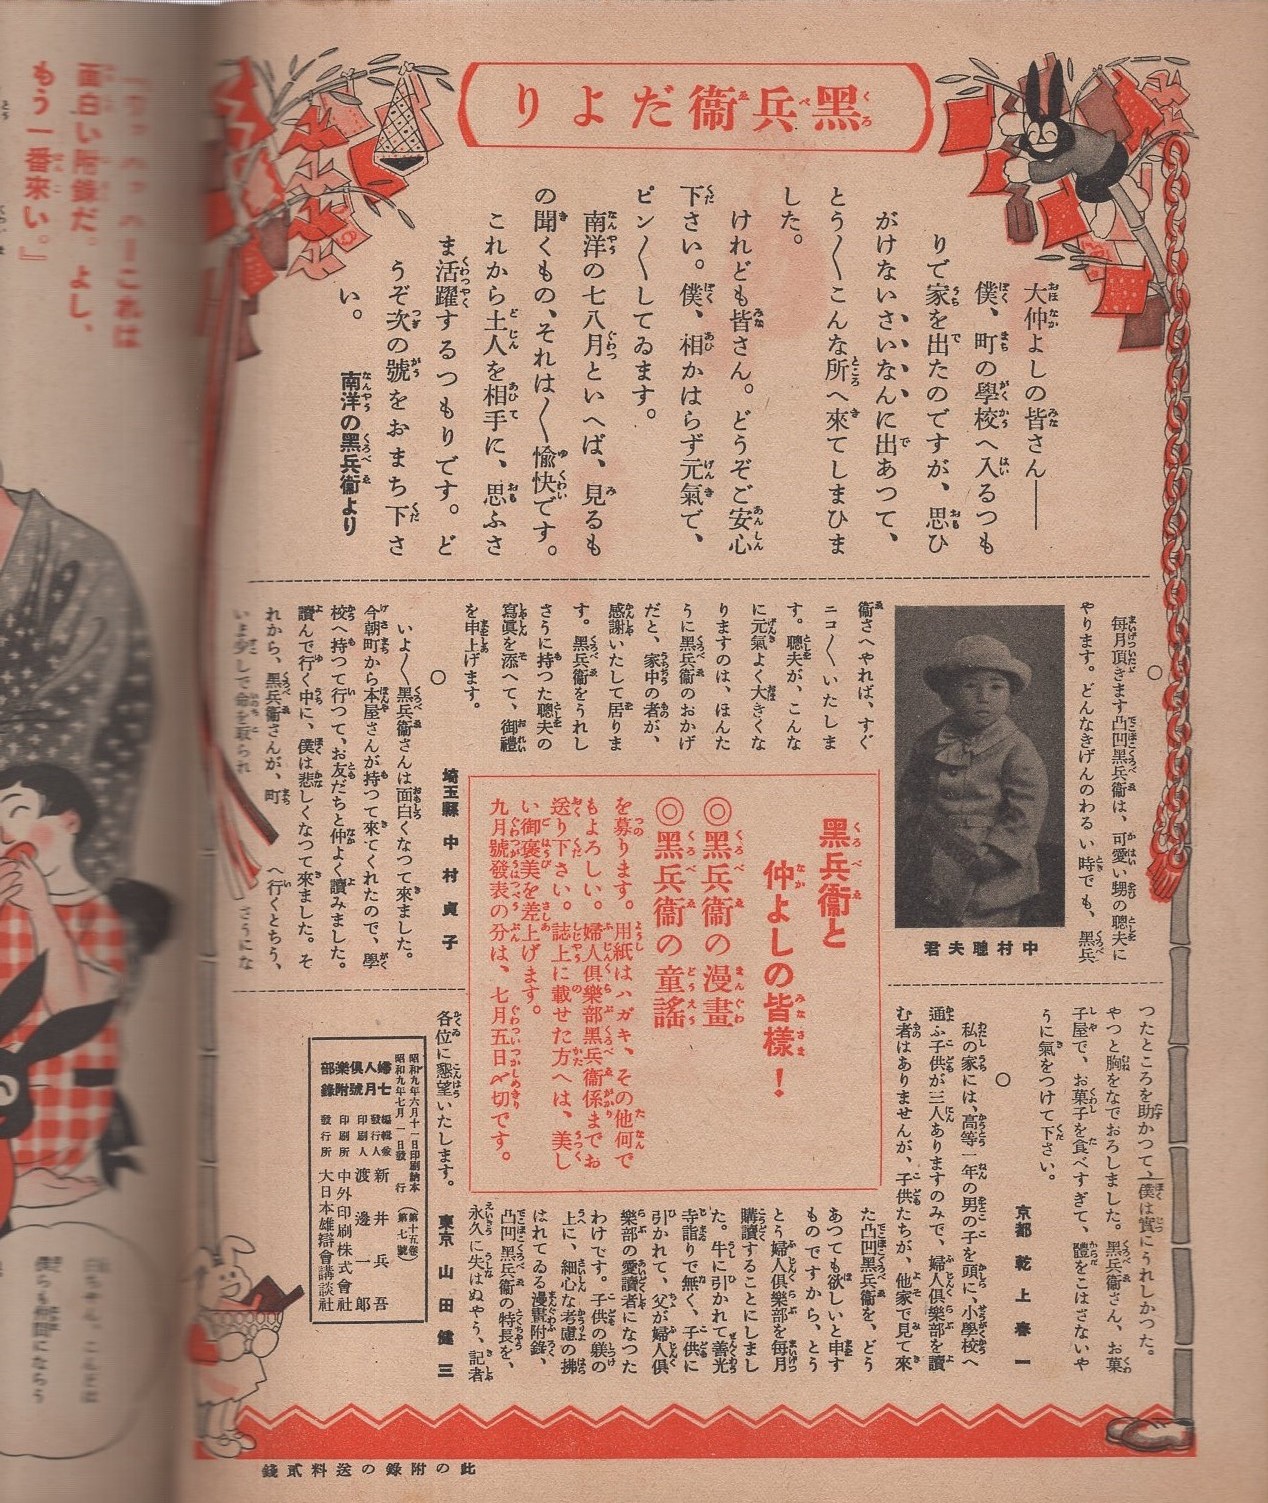 黑兵衞だより
大仲よしの皆さん――
僕、町の學校へ入るつも
りで家を出たのですが、思ひ
がけないさいなんに出あつて、
とう〳〵こんな所へ來てしまひま
した。
けれども皆さん。どうぞご安心
下さい。僕、相かはらず元氣で、
ピン〳〵してゐます。
南洋の七八月といへば、見るも
の聞くもの、それは〳〵愉快です。
これから土人を相手に、思ふさ
ま活躍するつもりです。ど
うぞ次の號をおまち下さ
い。
南洋の黑兵衞より
○
每月頂きます凸凹黑兵衞は、可愛い甥の聰夫に
やります。どんなきげんのわるい時でも、黑兵
中村聰夫君
衞さへやれば、すぐ
ニコ〳〵いたしま
す。聰夫が、こんな
に元氣よく大きくな
りますのは、ほんた
うに黑兵衞のおかげ
だと、家中の者が、
感謝いたして居りま
す。黑兵衞をうれし
さうに持つた聰夫の
寫眞を添へて、御禮
を申上げます。
埼玉縣 中村貞子
○
いよ〳〵黑兵衞さんは面白くなつて來ました。
今朝町から本屋さんが持つて來てくれたので、學
校へ持つて行つて、お友だちと仲よく讀みました。
讀んで行く中に、僕は悲しくなつて來ました。そ
れから、黑兵衞さんが、町へ行くとちう、
いま少しで命を取られさうにな
つたところを助かつて、僕は實にうれしかつた。
やつと胸をなでおろしました。黑兵衞さん、お菓
子屋で、お菓子を食べすぎて、體をこはさないや
うに氣をつけて下さい。
京都 乾上春一
○
私の家には、高等一年の男の子を頭に、小學校へ
通ふ子供が三人ありますのみで、婦人倶樂部を讀
む者はありませんが、子供たちが、他家で見て來
た凸凹黑兵衞を、どう
あつても欲しいと申す
ものですから、とう
とう婦人倶樂部を每月
購讀することにしまし
た。牛に引かれて善光
寺詣りで無く、子供に
引かれて、父が婦人倶
樂部の愛讀者になつた
わけです。子供の躾の
上に、細心な考慮の拂
はれてゐる漫畫附錄、
凸凹黑兵衞の特長を、
永久に失はぬやう、記者
各位に懇望いたします。
東京 山田健三
黑兵衞と
仲よしの皆樣！
◎黑兵衞の漫畫
◎黑兵衞の童謠
を募ります。用紙はハガキ、その他何で
もよろしい。婦人倶樂部黑兵衞係までお
送り下さい。誌上に載せた方へは、美し
い御褒美を差上げます。
九月號發表の分は、七月五日〆切です。
昭和九年六月十一日印刷納本
昭和九年七月一日發行
（第十五卷）
（第七號）
婦人倶樂部
七月號附錄
編輯兼發行人 新井兵吾
印刷人 渡邊一郎
印刷所 中外印刷株式會社
發行所 大日本雄辯會講談社
此の附錄の送料貳錢
これは
面白い附錄だ。よし、
もう一番來い。』